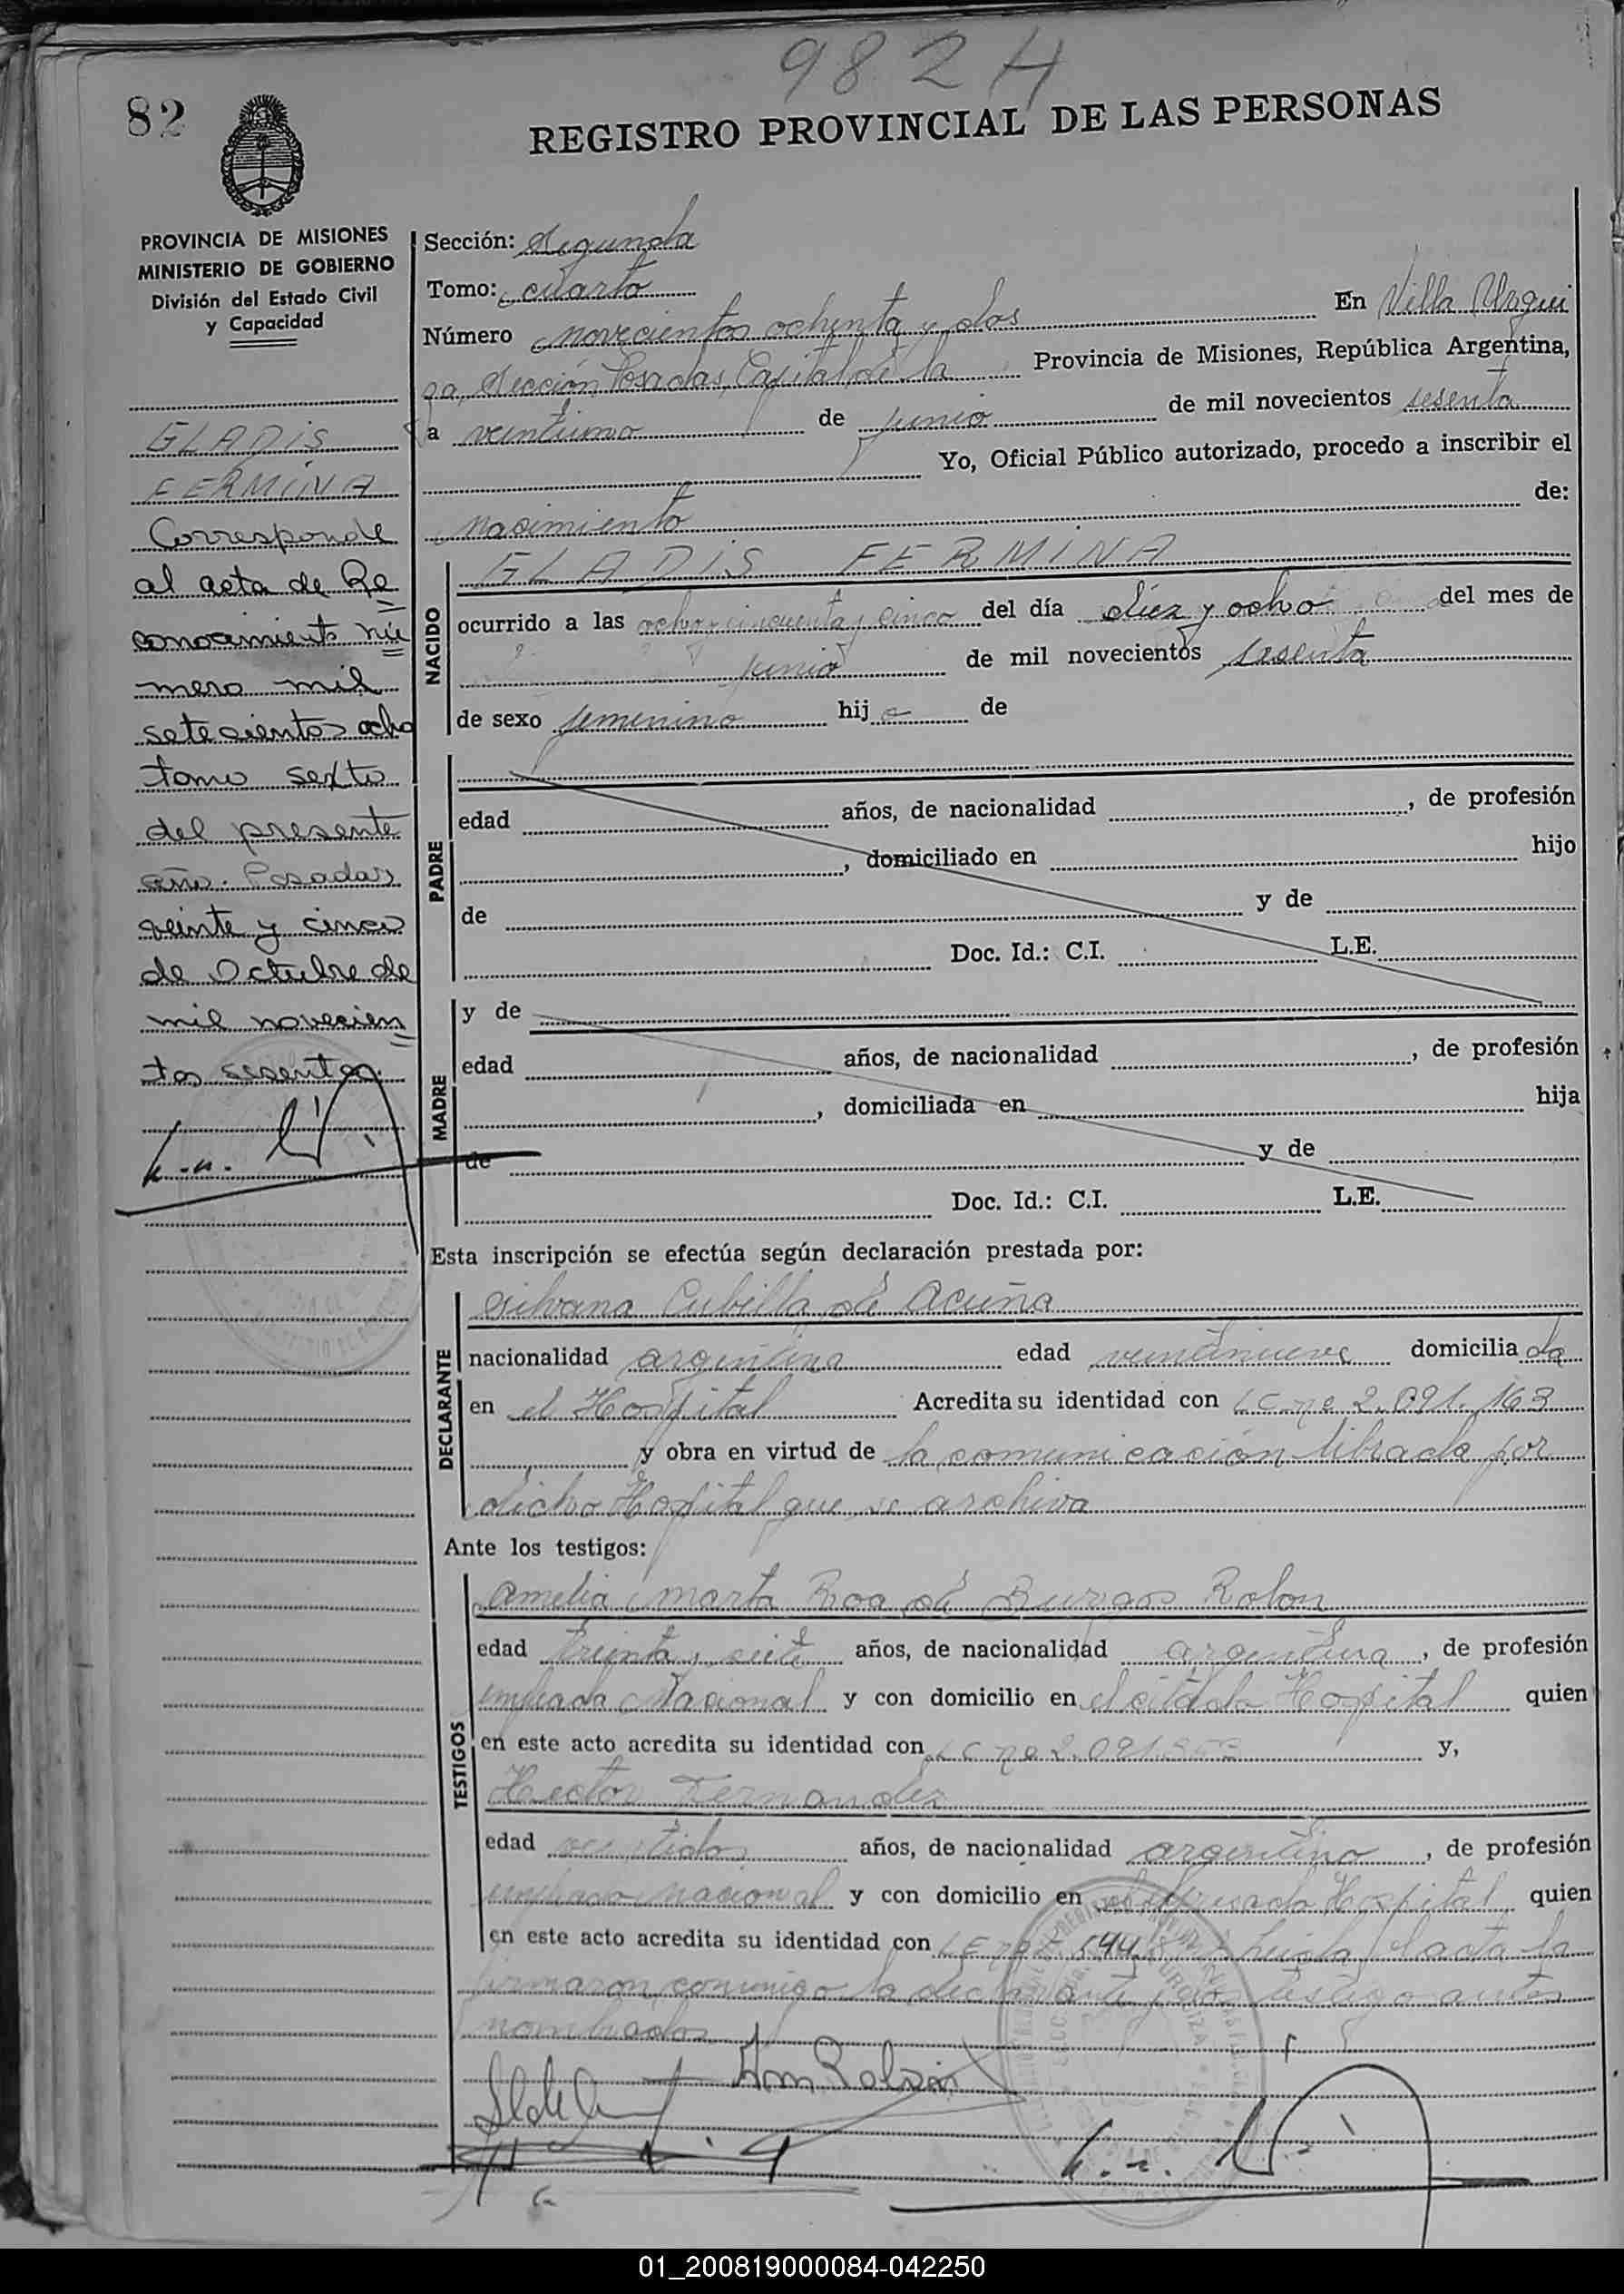 982 H
82
REGISTRO PROVINCIAL DE LAS PERSONAS
PROVINCIA DE MISIONES
MINISTERIO DE GOBIERNO
División del Estado Civil
y Capacidad
GLADIS
FERMINA
Corresponde
al acta de Re
conocimiento nú
mero mil
setecientos ocho
tomo sexto
del presente
año. Posadas
veinte y cinco
de Octubre de
mil novecien
tos sesenta
Sección: Segunda
Tomo: cuarto
Número novecientos ochenta y dos En Villa Urqui
za, Sección Posadas, Capital de la Provincia de Misiones, República Argentina,
a veintiuno de junio de mil novecientos sesenta
Yo, Oficial Público autorizado, procedo a inscribir el
nacimiento de:
NACIDO
GLADIS FERMINA
ocurrido a las ocho y cincuenta y cinco del día diez y ocho del mes de
junio de mil novecientos sesenta
de sexo femenino hij a de
PADRE
edad años, de nacionalidad , de profesión
, domiciliado en hijo
de y de
Doc. Id.: C.I. L.E.
MADRE
y de
edad años, de nacionalidad , de profesión
, domiciliada en hija
de y de
Doc. Id.: C.I. L.E.
Esta inscripción se efectúa según declaración prestada por:
DECLARANTE
Silvana Cubilla de Acuña
nacionalidad argentina edad veintinueve domicilia da
en el Hospital Acredita su identidad con LC no 2.091.163
y obra en virtud de la comunicación librada por
dicho Hospital que se archiva
Ante los testigos:
TESTIGOS
Amelia Marta Roa de Burgos Rolon
edad treinta y siete años, de nacionalidad argentina, de profesión
empleada Nacional y con domicilio en el citado Hospital quien
en este acto acredita su identidad con LC no 2.091. y,
Hector Fernandez
edad veintidos años, de nacionalidad argentino, de profesión
empleado nacional y con domicilio en el expresado Hospital quien
en este acto acredita su identidad con LE no leida el acta la
firmaron conmigo la declarante y los testigo antes
nombrados
01_200819000084-042250